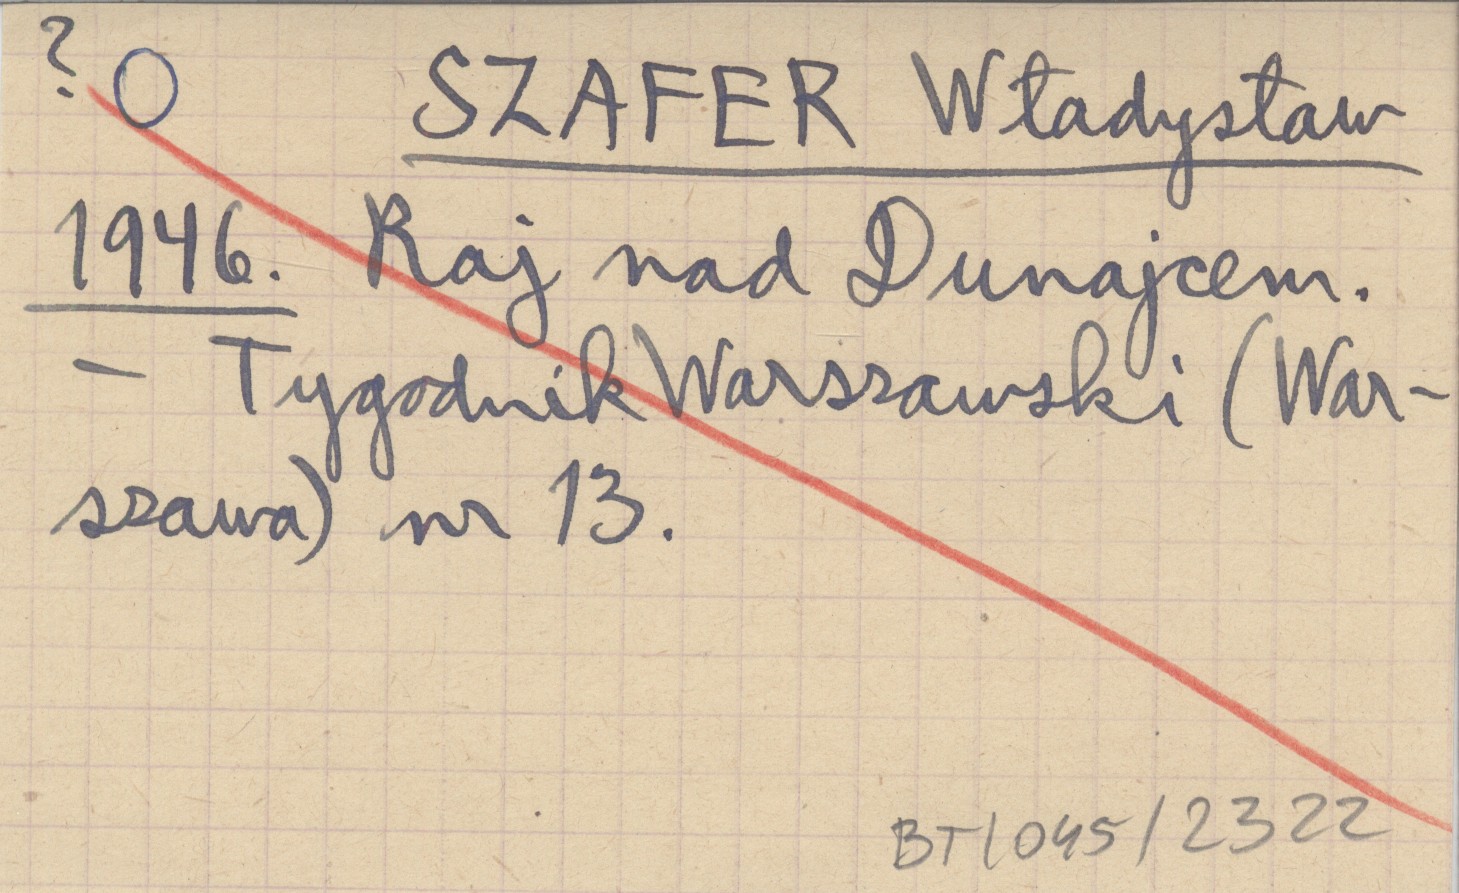 ? O SZAFER Władysław
1946. Raj nad Dunajcem.
– Tygodnik Warszawski (War-
szawa) nr 13.
BT/045/2322